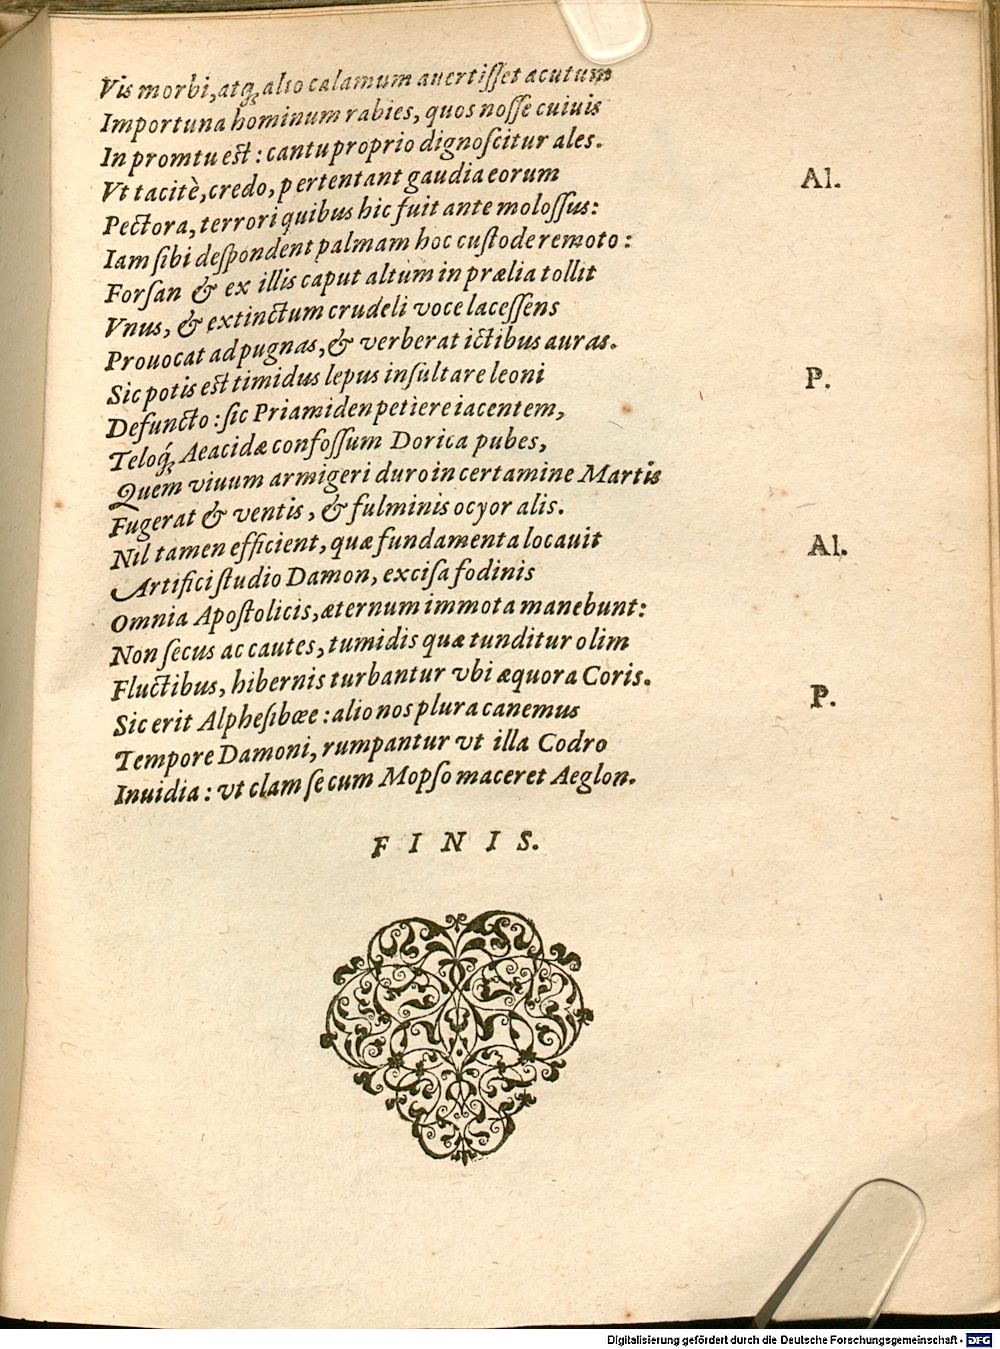 Vis morbi, atq́ꝫ alio calamum auertiſſet acutum
Importuna hominum rabies, quos noſſe cuiuis
In promtu eſt : cantu proprio dignoſcitur ales.
Vt tacitè, credo, pertentant gaudia eorum Al.
Pectora, terrori quibus hic fuit ante moloſſus:
Iam ſibi deſpondent palmam hoc cuſtode remoto :
Forſan & ex illis caput altùm in prælia tollit
Vnus, & extinctum crudeli voce laceſſens
Prouocat ad pugnas, & verberat ictibus auras.
Sic potis eſt timidus lepus inſultare leoni P.
Defuncto : ſic Priamiden petiere iacentem,
Teloq́ꝫ Aeacidæ confoſſum Dorica pubes,
Quem viuum armigeri duro in certamine Martis
Fugerat & ventis, & fulminis ocyor alis.
Nil tamen efficient, quæ fundamenta locauit Al.
Artifici ſtudio Damon, exciſa fodinis
Omnia Apoſtolicis, æternum immota manebunt:
Non ſecus ac cautes, tumidis quæ tunditur olim
Fluctibus, hibernis turbantur vbi æquora Coris.
Sic erit Alpheſibœe : alio nos plura canemus P.
Tempore Damoni, rumpantur vt illa Codro
Inuidia : vt clam ſecum Mopſo maceret Aeglon.
FINIS.
Digitalisierung gefördert durch die Deutsche Forschungsgemeinschaft - DFG